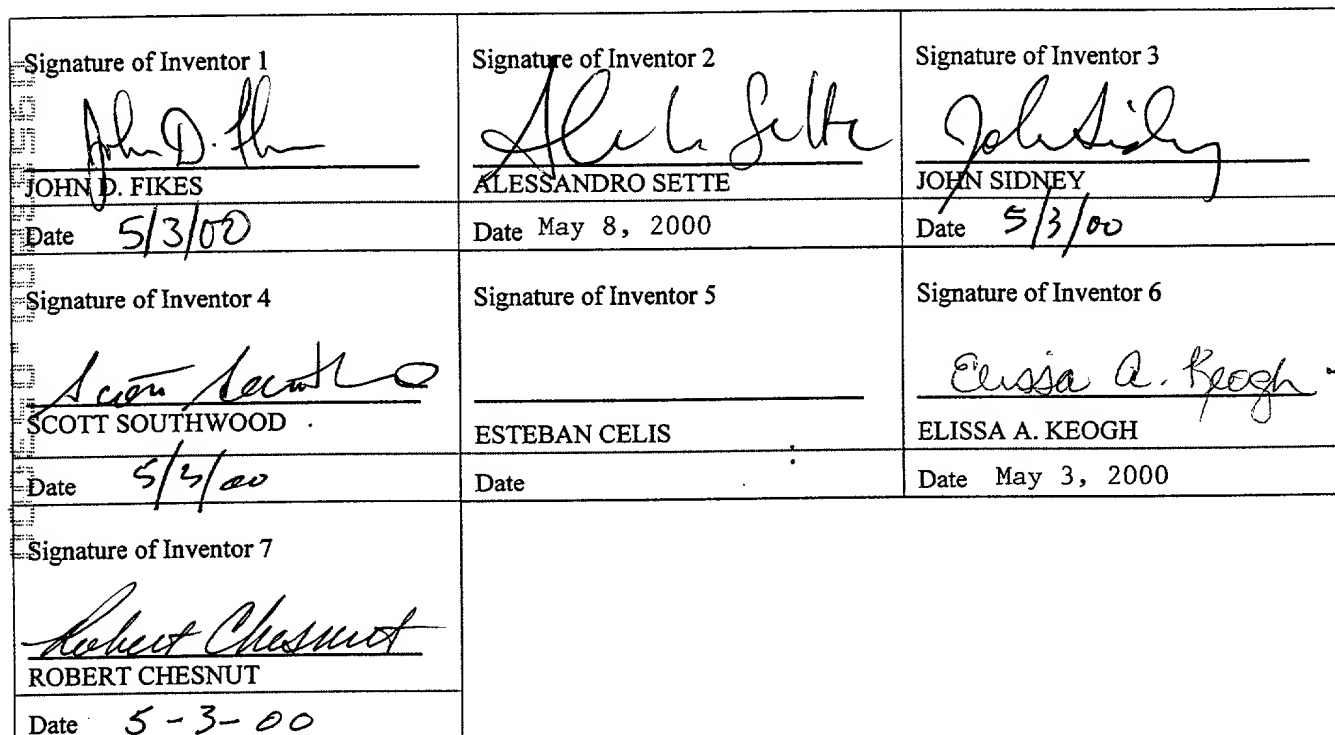 Signature of Inventor 1
John D. Fikes
JOHN D. FIKES
Date 5/3/00
Signature of Inventor 2
Aless Sette
ALESSANDRO SETTE
Date May 8, 2000
Signature of Inventor 3
John Sidney
JOHN SIDNEY
Date 5/3/00
Signature of Inventor 4
Scott Southwood
SCOTT SOUTHWOOD
Date 5/3/00
Signature of Inventor 5
ESTEBAN CELIS
Date
Signature of Inventor 6
Elissa A. Keogh
ELISSA A. KEOGH
Date May 3, 2000
Signature of Inventor 7
Robert Chesnut
ROBERT CHESNUT
Date 5-3-00